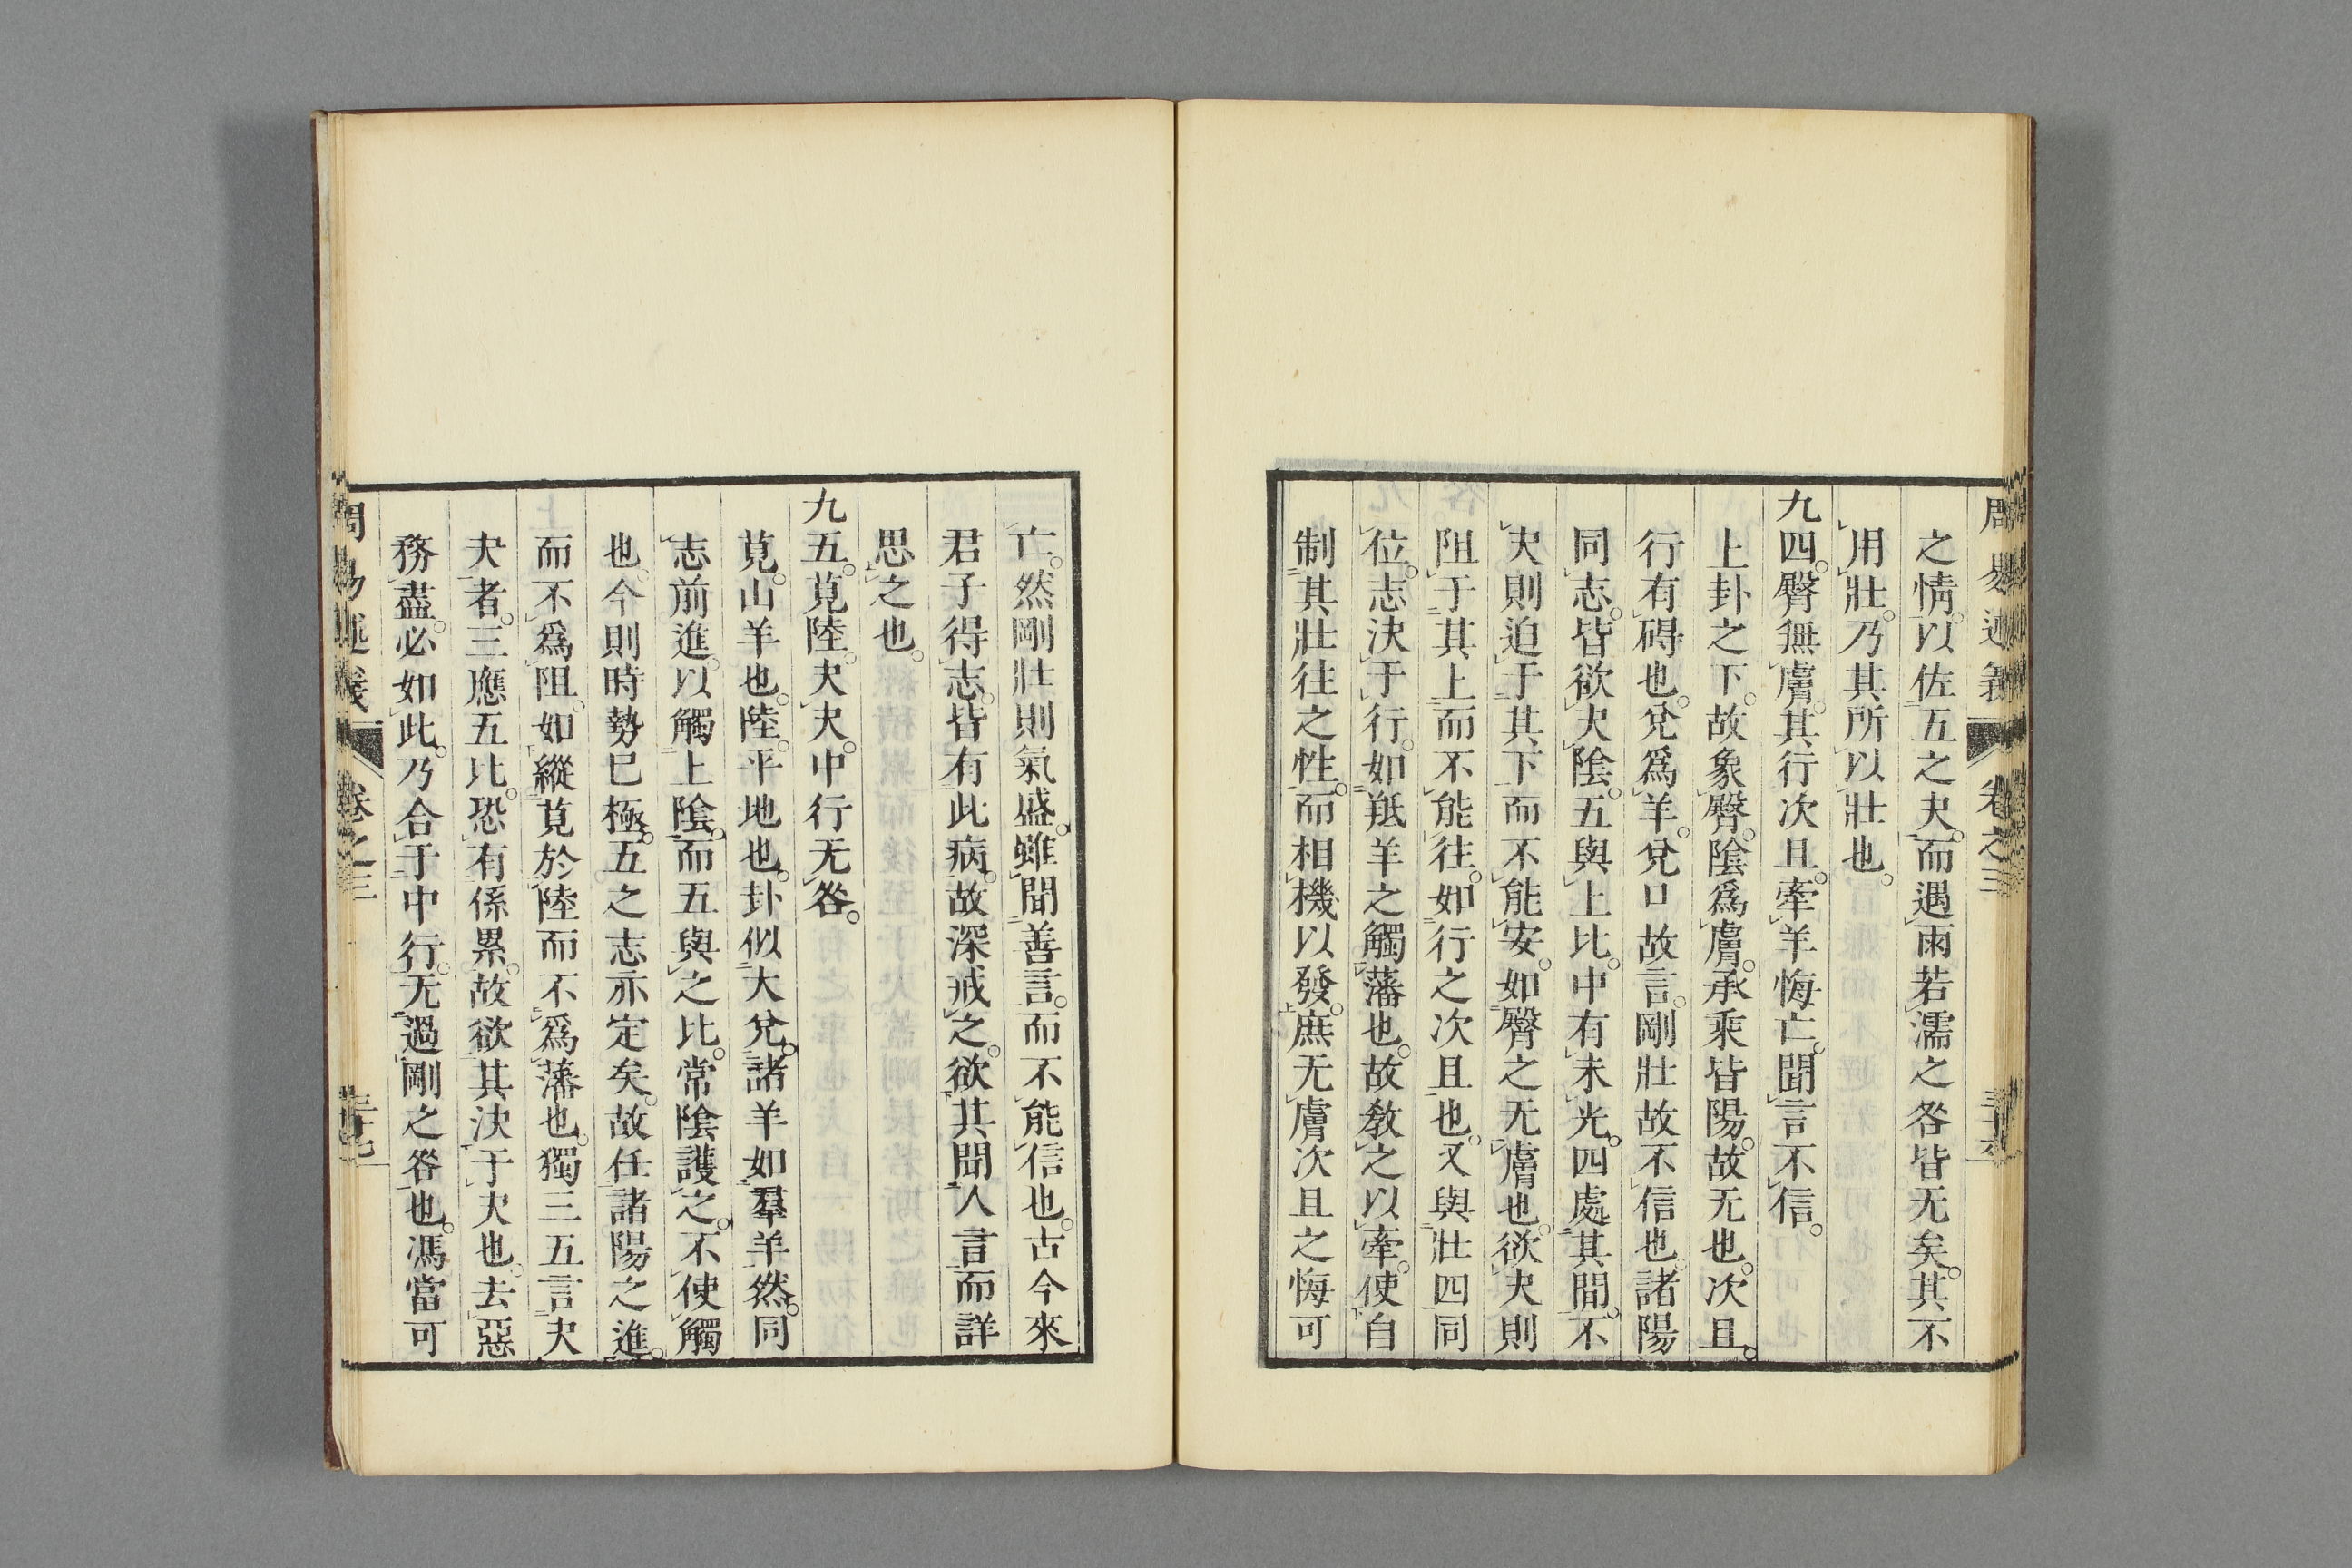 周易述義 卷之三
之情。以佐五之夬。而遇雨若濡之咎皆无矣。其不
用壯。乃其所以壯也。
九四。臀無膚。其行次且。牽羊悔亡。聞言不信。
上卦之下。故象臀。陰爲膚。承乘皆陽。故无也。次且。
行有碍也。兌爲羊。兌口故言。剛壯故不信也。諸陽
同志。皆欲夬陰。五與上比。中有未光。四處其間。不
夬則迫于其下而不能安。如臀之无膚也。欲夬則
阻于其上而不能往。如行之次且也。又與壯四同
位。志決于行。如羝羊之觸藩也。故教之以牽。使自
制其壯往之性。而相機以發。庶无膚次且之悔可
亡。然剛壯則氣盛。雖聞善言。而不能信也。古今來
君子得志。皆有此病。故深戒之。欲其聞人言而詳
思之也。
九五。莧陸。夬夬。中行无咎。
莧。山羊也。陸。平地也。卦似大兌。諸羊如羣羊然。同
志前進。以觸上陰。而五與之比。常陰護之。不使觸
也。今則時勢巳極。五之志亦定矣。故任諸陽之進。
而不爲阻。如縱莧於陸而不爲藩也。獨三五言夬
夬者。三應五比。恐有係累。故欲其決于夬也。去惡
務盡。必如此。乃合于中行。无過剛之咎也。馮當可
周易述義 卷之三